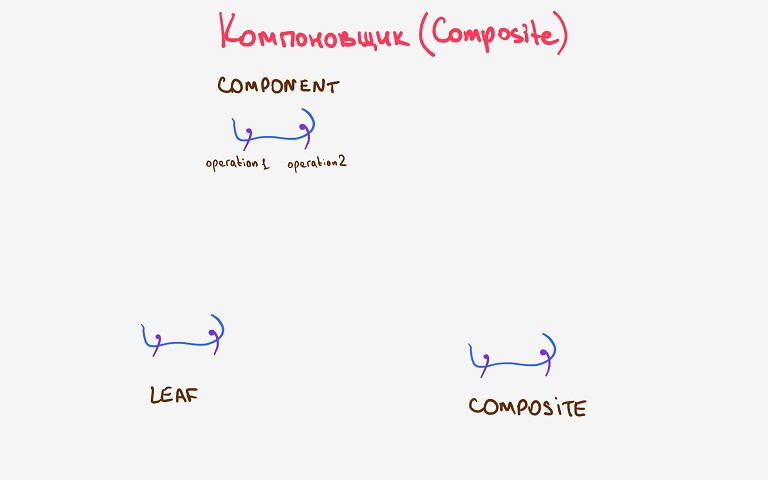 Компоновщик (Composite)
COMPONENT
operation1 operation2
LEAF
COMPOSiTE